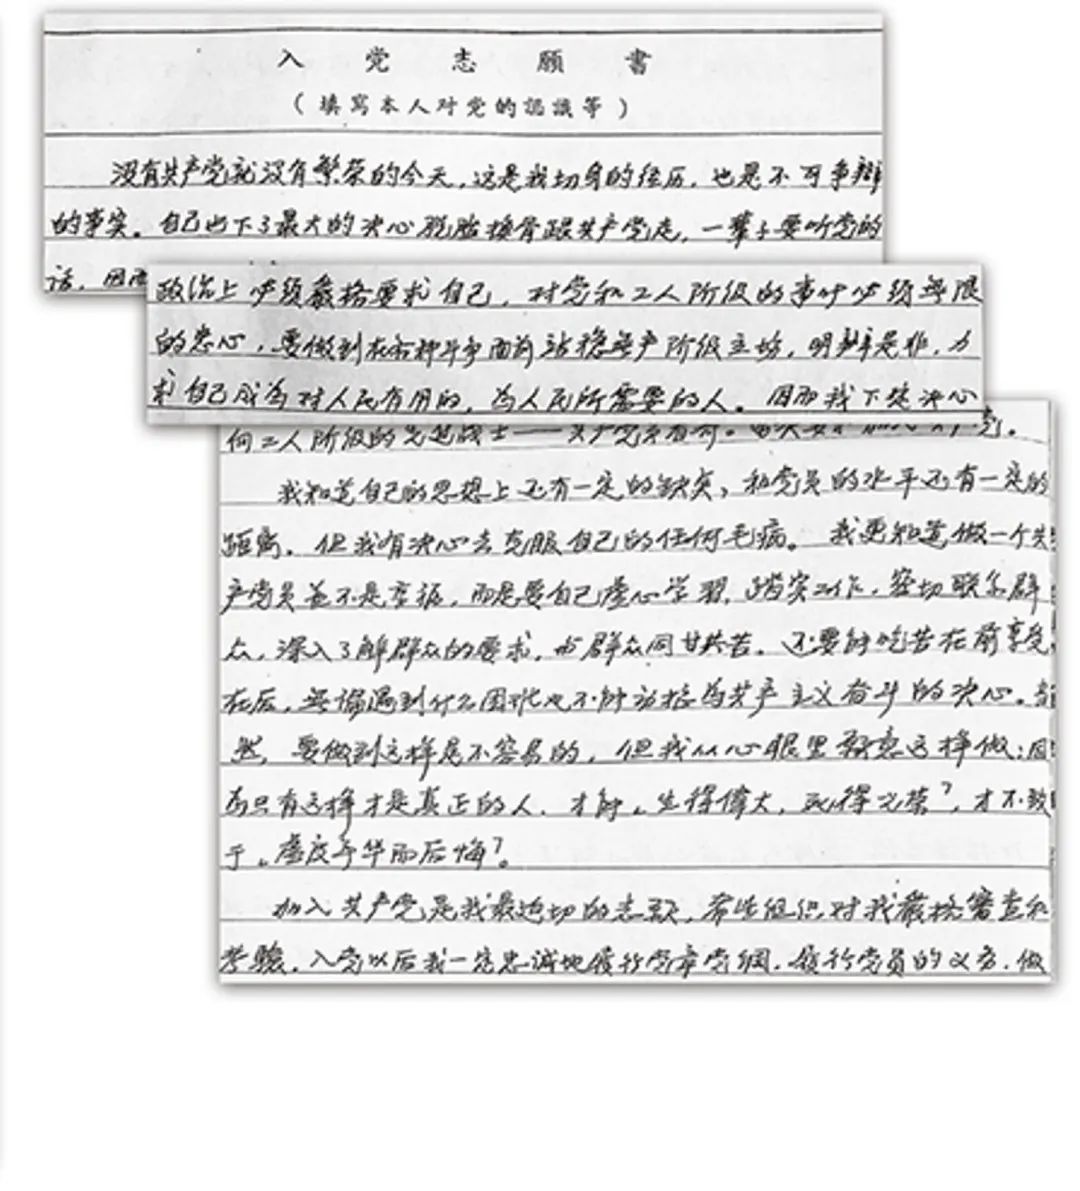 入党志願書
（填寫本人对党的認識等）
没有共产党就没有繁荣的今天，这是我切身的经历，也是不可争辩
的事实。自己也下了最大的决心脱胎换骨跟共产党走，一辈子要听党的
话，因而
政治上必须严格要求自己，对党和工人阶级的事业必须無限
的忠心，要做到在各种斗争面前站稳無产阶级立场，明辨是非，力
求自己成为对人民有用的，为人民所需要的人。因而我下定决心
向工人阶级的先进战士——共产党员看齐。
我知道自己的思想上还有一定的缺点，和党员的水平还有一定的
距离，但我有决心去克服自己的任何毛病。我更知道做一个共
产党员並不是享福，而是要自己虚心学習，踏实工作，密切联系群
众，深入了解群众的要求，与群众同甘共苦。还要能吃苦在前享受
在后，無論遇到什么困难也不能动摇为共产主义奋斗的决心。当
然，要做到这样是不容易的，但我从心眼里愿意这样做；因
为只有这样才是真正的人，才能“生得偉大，死得光荣”，才不致
于“虚度年华而后悔”。
加入共产党是我最迫切的志愿，希望组织对我严格審查和
考驗，入党以后我一定忠誠地履行党章党綱，履行党员的义务，做